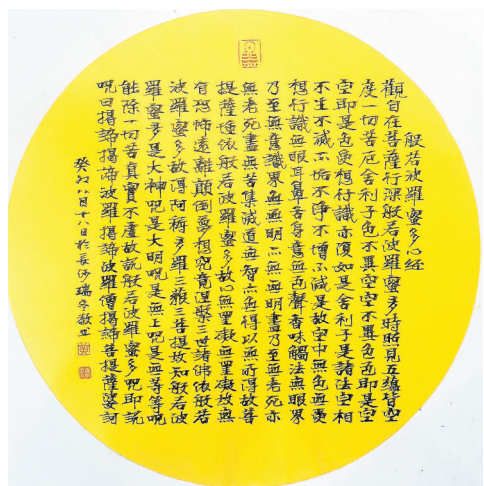 般若波羅蜜多心經
觀自在菩薩行深般若波羅蜜多時照見五蘊皆空
度一切苦厄舍利子色不異空空不異色色即是空
空即是色受想行識亦復如是舍利子是諸法空相
不生不滅不垢不淨不增不減是故空中無色無受
想行識無眼耳鼻舌身意無色聲香味觸法無眼界
乃至無意識界無無明亦無無明盡乃至無老死亦
無老死盡無苦集滅道無智亦無得以無所得故菩
提薩埵依般若波羅蜜多故心無罣礙無罣礙故無
有恐怖遠離顛倒夢想究竟涅槃三世諸佛依般若
波羅蜜多故得阿耨多羅三藐三菩提故知般若波
羅蜜多是大神咒是大明咒是無上咒是無等等咒
能除一切苦真實不虛故說般若波羅蜜多咒即說
咒曰揭諦揭諦波羅揭諦波羅僧揭諦菩提薩婆訶
癸卯八月十八日於長沙瑞冬敬書